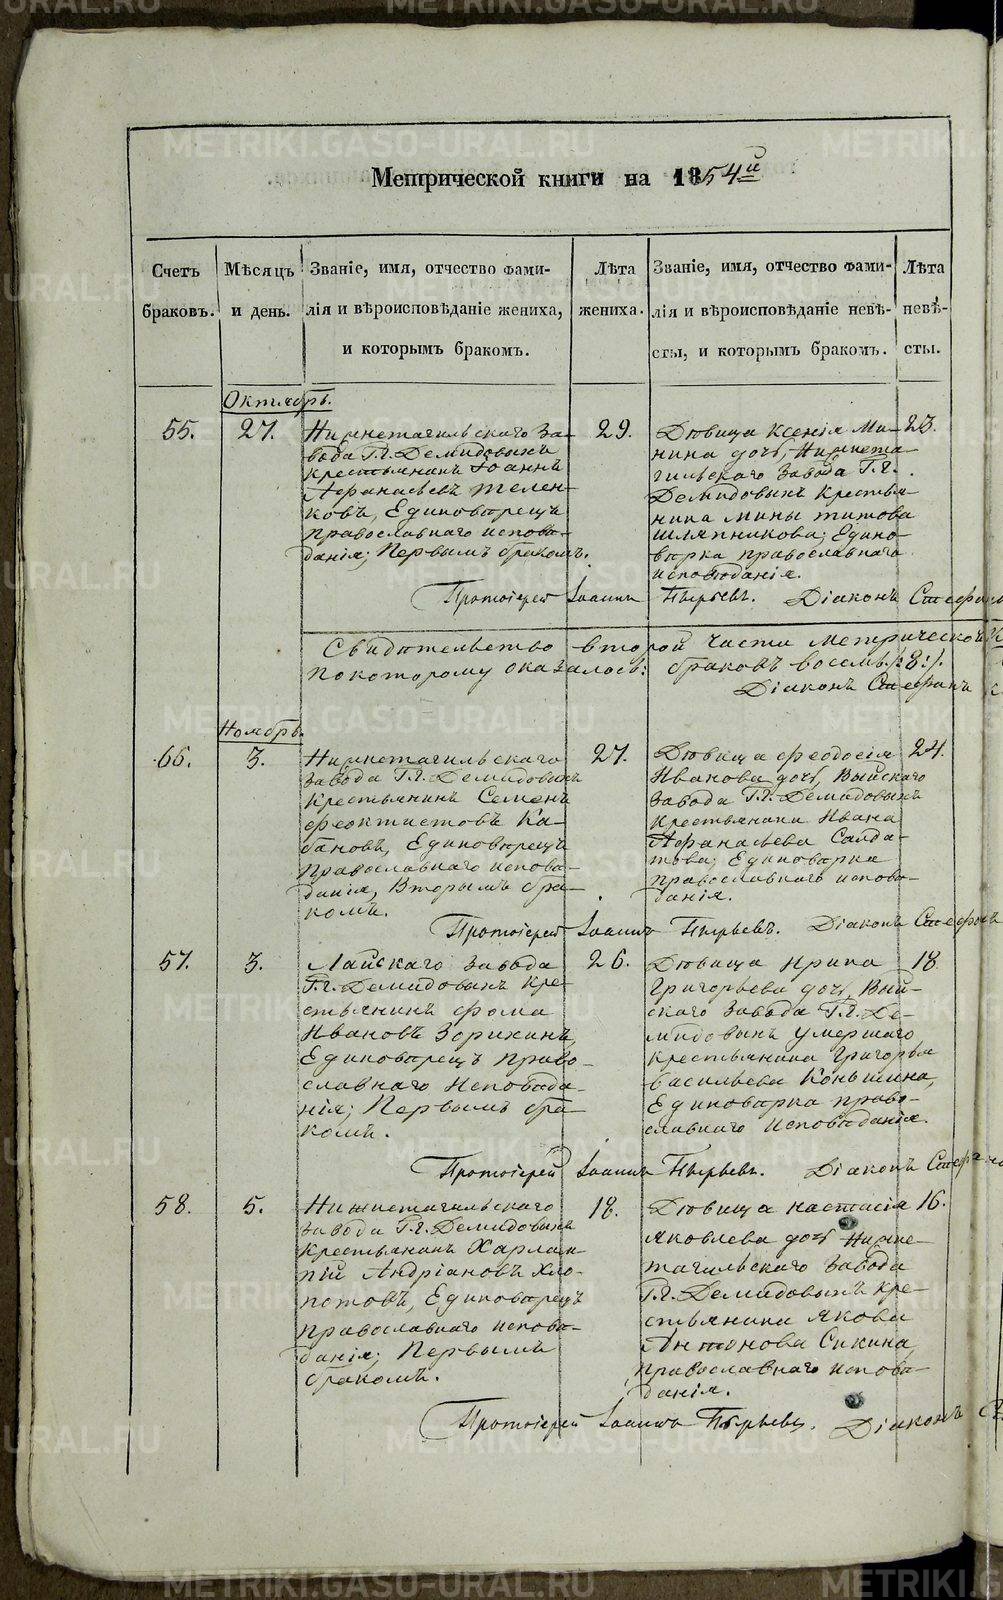 Метрической книги на 1854й
Счетъ браковъ.
Мѣсяцъ и день.
Званіе, имя, отчество фами-
лія и вѣроисповѣданіе жениха,
и которымъ бракомъ.
Лѣта
жениха.
Званіе, имя, отчество фами-
лія и вѣроисповѣданіе невѣ-
сты, и которымъ бракомъ.
Лѣта
невѣ-
сты.
Октябрь.
55.
27.
Нижнетагильскаго За-
вода Г.г. Демидовыхъ
крестьянинъ Іоаннъ
Афанасьевъ Телен-
ковъ, Единовѣрецъ
православнаго исповѣ-
данія; Первымъ бракомъ.
29.
Дѣвица Ксенія Ми-
нина дочь, Нижнета-
гильскаго Завода Г.г.
Демидовыхъ крестья-
нина Мины Титова
Шляпникова; Едино-
вѣрка православнаго
исповѣданія.
23.
Протоіерей Іоаннъ Пырьевъ. Діаконъ Стефанъ
Свидѣтельство второй части Метрической
по которому оказалось: браковъ восемь /:8:/.
Діаконъ Стефанъ
Ноябрь.
66.
3.
Нижнетагильскаго
Завода Г.г. Демидовыхъ
крестьянинъ Семенъ
Феоктистовъ Ка-
бановъ, Единовѣрецъ
православнаго исповѣ-
данія, Вторымъ бра-
комъ.
27.
Дѣвица Феодосія
Иванова дочь, Выйскаго
Завода Г.г. Демидовыхъ
крестьянина Ивана
Афанасьева Салда-
това; Единовѣрка
православнаго исповѣ-
данія.
24.
Протоіерей Іоаннъ Пырьевъ. Діаконъ Стефанъ
57.
3.
Лайскаго Завода
Г.г. Демидовыхъ кре-
стьянинъ Фома
Ивановъ Зорихинъ,
Единовѣрецъ право-
славнаго Исповѣда-
нія; Первымъ бра-
комъ.
26.
Дѣвица Ирина
Григорьева дочь, Вый-
скаго Завода Г.г. Де-
мидовыхъ умершаго
крестьянина Григорья
Васильева Коньшина,
Единовѣрка право-
славнаго Исповѣданія.
18
Протоіерей Іоаннъ Пырьевъ. Діаконъ Стефанъ
58.
5.
Нижнетагильскаго
Завода Г.г. Демидовыхъ
крестьянинъ Харлам-
пій Андріановъ Хло-
потовъ, Единовѣрецъ
православнаго исповѣ-
данія; Первымъ
бракомъ.
18.
Дѣвица Настасія
Яковлева дочь Нижне-
тагильскаго Завода
Г.г. Демидовыхъ кре-
стьянина Якова
Антонова Сикина,
православнаго исповѣ-
данія.
16.
Протоіерей Іоаннъ Пырьевъ. Діаконъ
METRIKI.GASO-URAL.RU